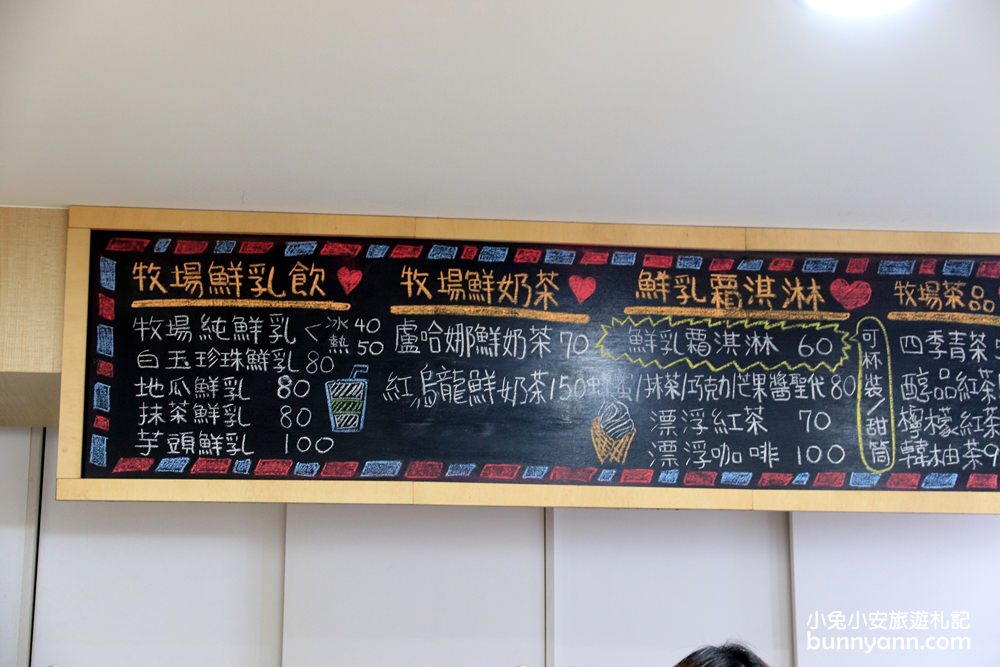 牧場鮮乳飲
牧場純鮮乳<冰40
熱50
白玉珍珠鮮乳80
地瓜鮮乳 80
抹茶鮮乳 80
芋頭鮮乳 100
牧場鮮奶茶
盧哈娜鮮奶茶70
紅烏龍鮮奶茶150
鮮乳霜淇淋
鮮乳霜淇淋 60
/抹茶/巧克力/芒果醬聖代80
漂浮紅茶 70
漂浮咖啡 100
可杯裝/甜筒
牧場茶品
四季青茶
醇品紅茶
檸檬紅茶
韓柚茶9
小兔小安旅遊札記
bunnyann.com